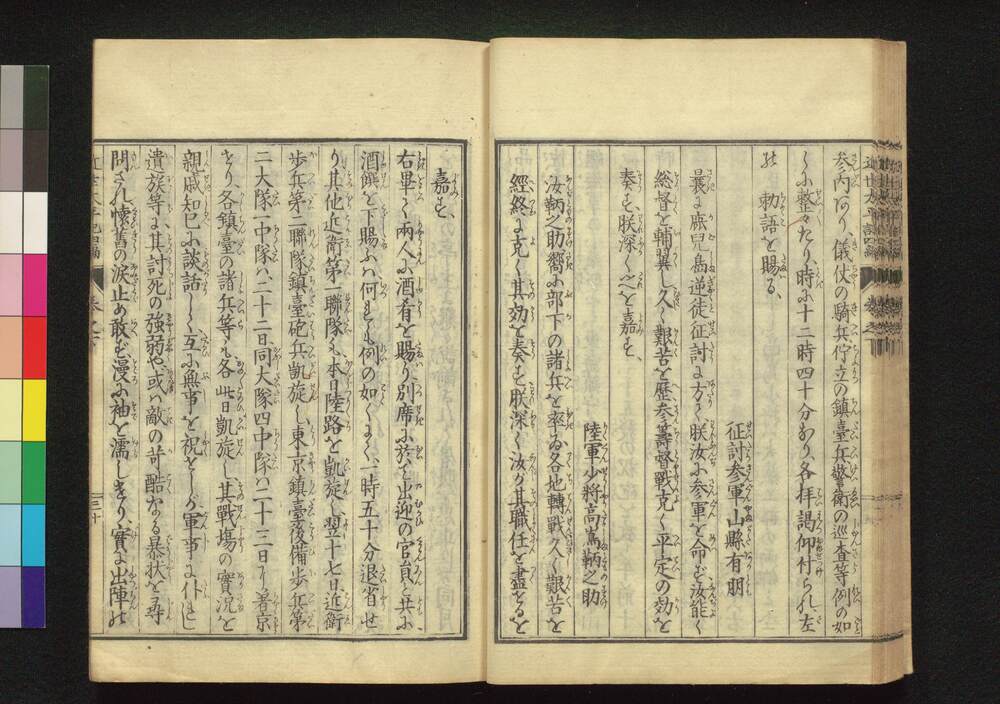 参内あり、儀仗の騎兵佇立の鎮臺兵警衛の巡査等例の如
くに整々たり、時に十二時四十分なり、各拝謁仰付られ、左
の　勅語を賜る、
征討参軍山縣有朋
曩に鹿兒島逆徒征討に方りて朕汝に参軍を命ず汝能く
総督を輔翼し久く艱苦を歴参籌督戰克く平定の効を
奏す、朕深く之を嘉す、
陸軍少將高嶌鞆之助
汝鞆之助嚮に部下の諸兵を率ゐ各地轉戰久く艱苦を
經終に克く其効を奏す朕深く汝が其職任を盡せるを
嘉す、
右畢て兩人に酒肴を賜り別席に於て出迎の官員と共に
酒饌を下賜ふ何れも何の如くにて、一時五十分退省せ
り其他近衛第一聯隊も本日陸路を凱旋し翌十七日近衛
歩兵第二聯隊鎮臺砲兵凱旋し東京鎮臺後備歩兵第
二大隊一中隊ハ二十二日、同大隊四中隊ハ二十三日に着京
せり、各鎮臺の諸兵等も各此日凱旋し其戰塲の實况を
親戚知已に談話して互に無事を祝せしが軍事に仆れし
遺族等は其討死の強弱や或ハ敵の苛酷なる暴状を尋
問され懐舊の涙止め敢ず漫に袖を濡しせり實に出陣の
三十
近世太平記四編